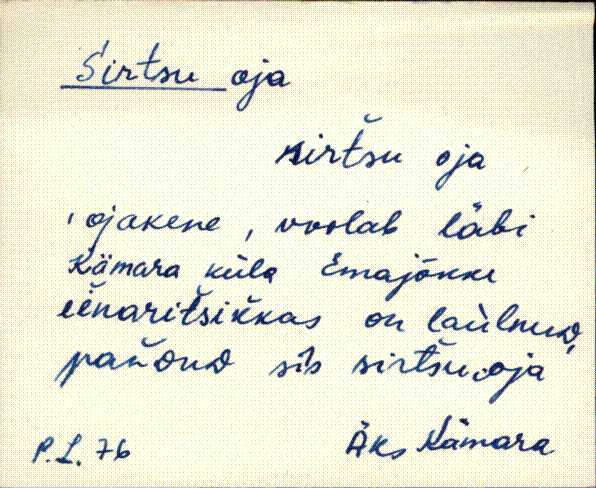 Sirtsu oja
sirtšu oja
'ojakene', voolab läbi
Kämara küla Emajõkke
eńaritšikkas on laùlnud,
pańdud sìs sirtšu oja
P.L. 76
Äks Kämara